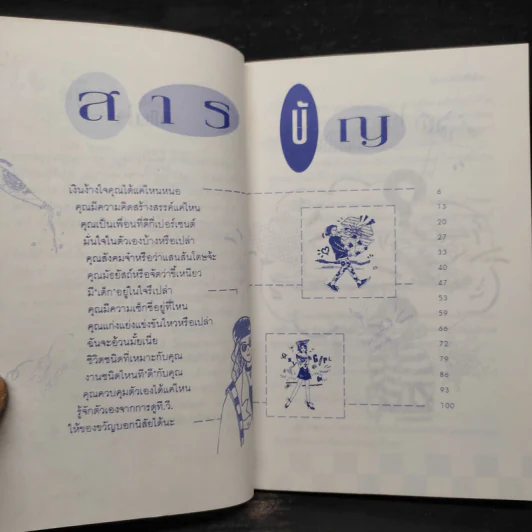 สารบัญ
เงินง้างใจคุณได้แค่ไหนหนอ 6
คุณมีความคิดสร้างสรรค์แค่ไหน 15
คุณเป็นเพื่อนที่ดีกี่เปอร์เซนต์ 20
มั่นใจในตัวเองบ้างหรือเปล่า 27
คุณสังคมจ๋าหรือว่าแสนสันโดษจ้ะ 33
คุณมัธยัสถ์หรือจัดว่าขี้เหนียว 40
มี"เด็ก"อยู่ในใจรึเปล่า 47
คุณมีความเซ็กซี่อยู่ที่ไหน 53
คุณแก่งแย่งแข่งขันไหวหรือเปล่า 59
ฉันจะอ้วนมั้ยเนี่ย 66
ชีวิตชนิดที่เหมาะกับคุณ 72
งานชนิดไหนที่"ดี"กับคุณ 79
คุณควบคุมตัวเองได้แค่ไหน 86
รู้จักตัวเองจากการดูที.วี. 93
ให้ของขวัญบอกนิสัยได้นะ 100
GIRL